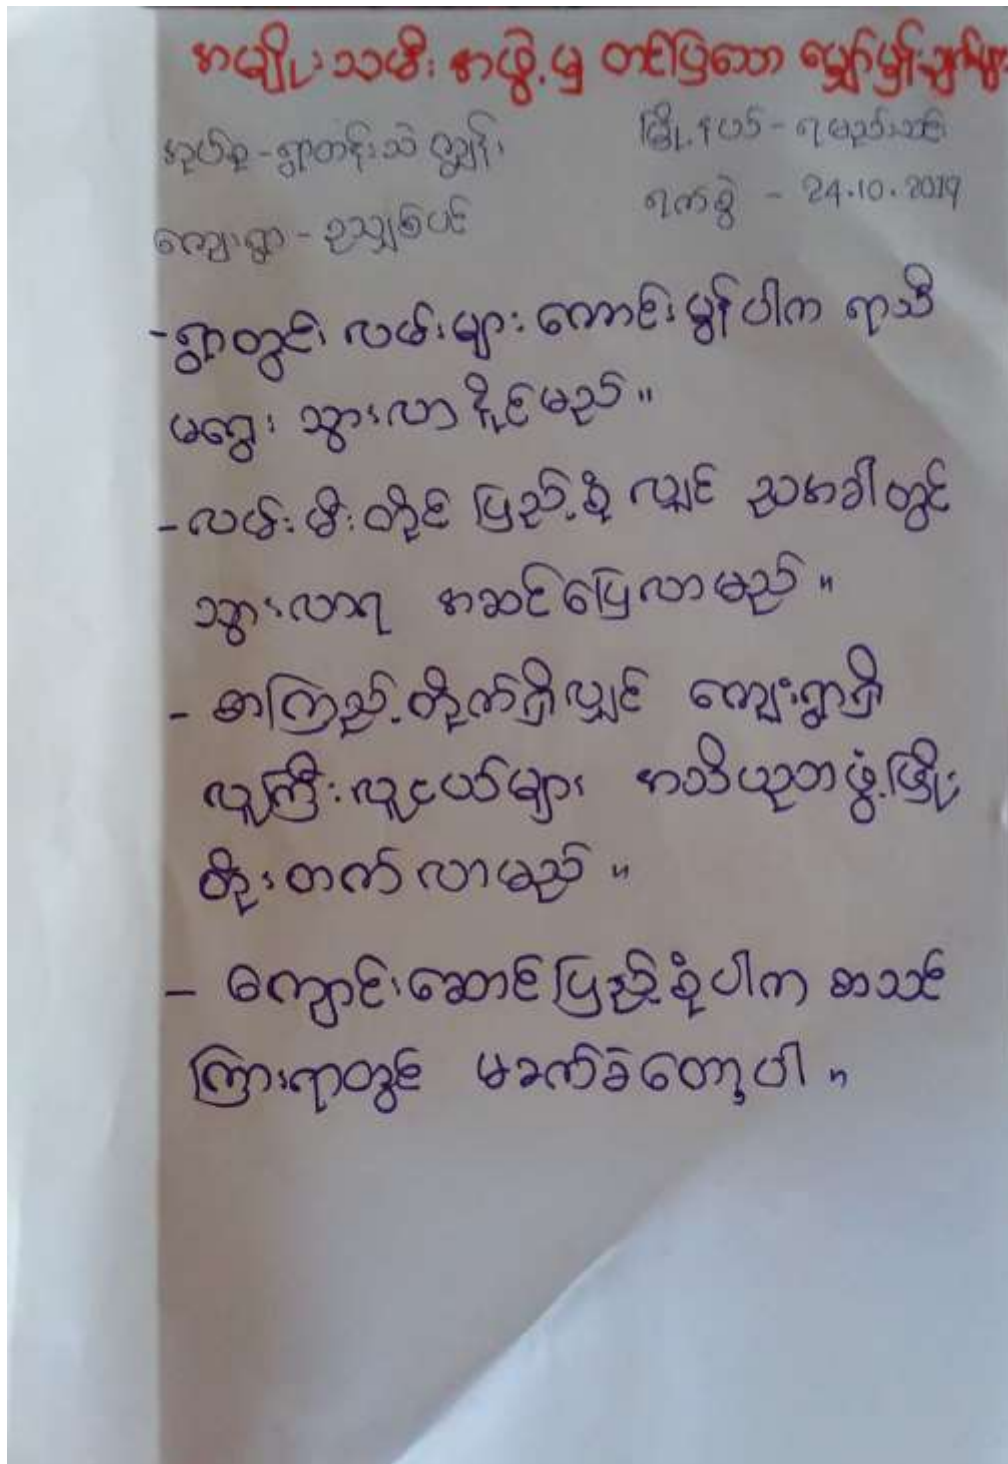 အမျိုးသမီးအဖွဲ့မှ တင်ပြသော မျှော်မှန်းချက်များ
အုပ်စု - ရွာတန်းသဲကျွန်း
မြို့နယ် - ရမည်းသင်း
ကျေးရွာ - ဥသျှစ်ပင်
ရက်စွဲ - 24.10.2019
- ရွာတွင်း လမ်းများ ကောင်းမွန်ပါက ရာသီ
မရွေး သွားလာနိုင်မည်။
- လမ်းမီးတိုင် ပြည့်စုံလျှင် ညအခါတွင်
သွားလာရ အဆင်ပြေလာမည်။
- စာကြည့်တိုက်ရှိလျှင် ကျေးရွာရှိ
လူကြီးလူငယ်များ အသိပညာဖွံ့ဖြိုး
တိုးတက်လာမည်။
- ကျောင်းဆောင်ပြည့်စုံပါက စာသင်
ကြားရာတွင် မခက်ခဲတော့ပါ။